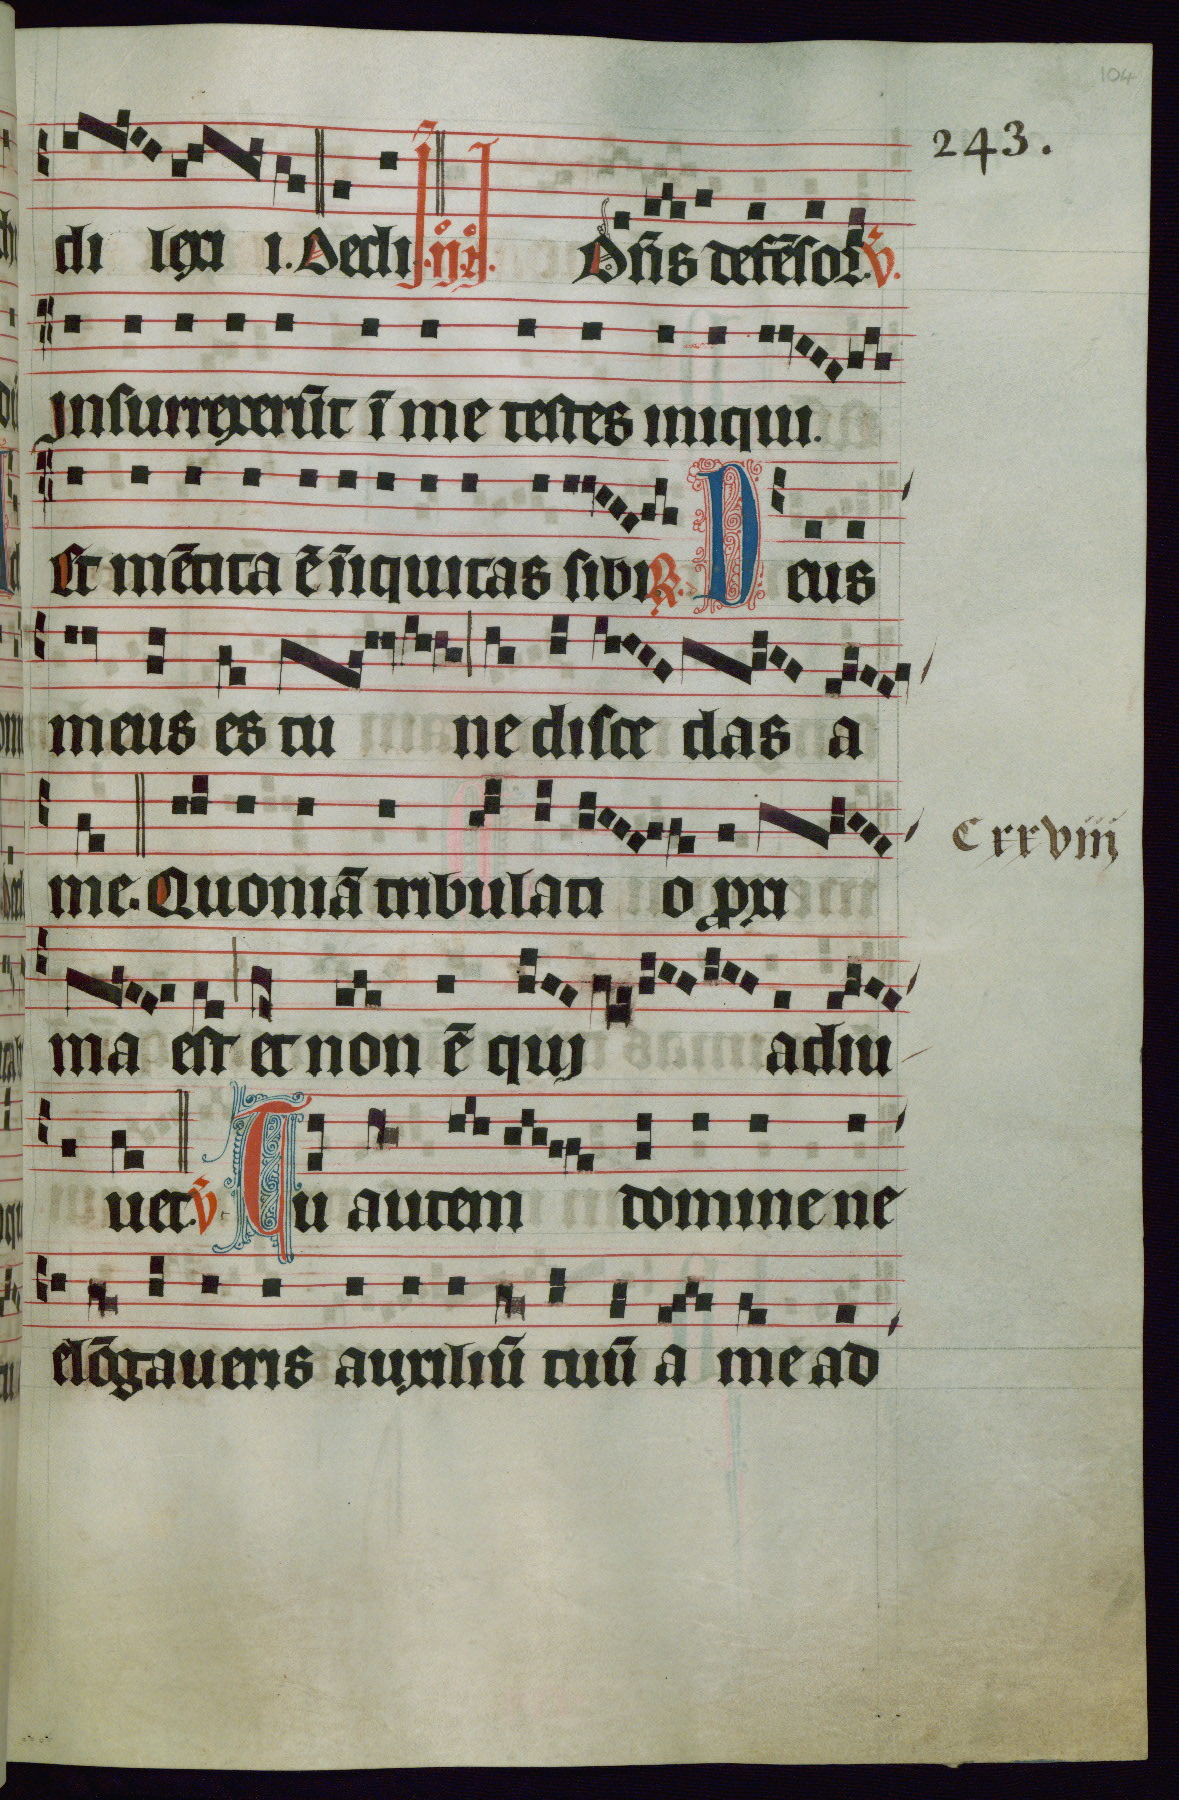 104
243.
di lexi i. Decli. ij. Dñs defēsor. v̄.
Insurrexerūt ī me testes iniqui.
Et mētita ē īiquitas sibi. R. Deus
meus es tu ne disce das a
me. Quoniā tribulati o prxi
Cxxviii
ma est et non ē qui adiu
uet. v̄. Tu autem domine ne
elōgaueris auxiliū tuū a me ad